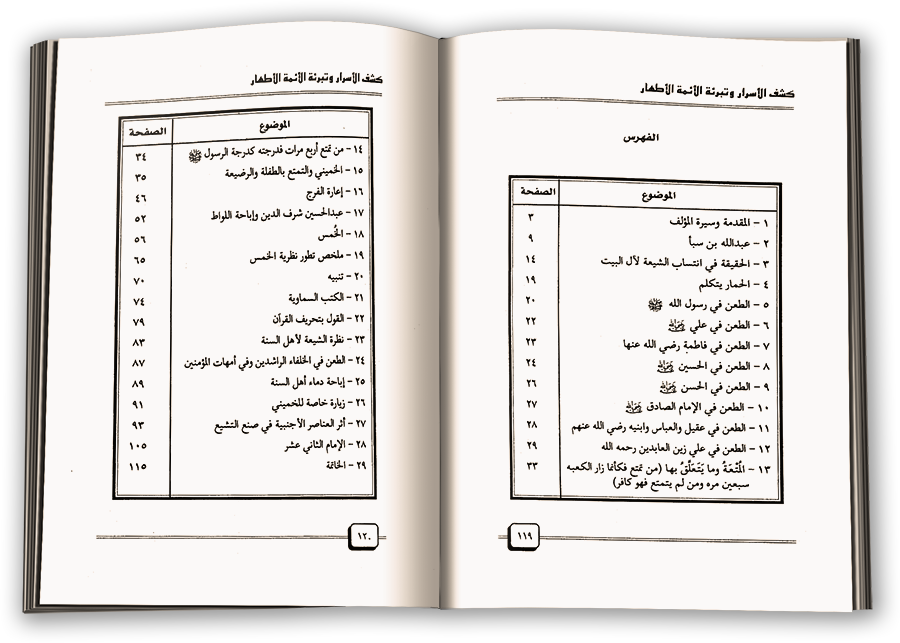 كشف الأسرار وتبرئة الأئمة الأطهار
الفهرس
الموضوع الصفحة
١ - المقدمة وسيرة المؤلف ٣
٢ - عبدالله بن سبأ ٩
٣ - الحقيقة في انتساب الشيعة لآل البيت ١٤
٤ - الحمار يتكلم ١٩
٥ - الطعن في رسول الله ﷺ ٢٠
٦ - الطعن في علي رضي الله عنه ٢٢
٧ - الطعن في فاطمة رضي الله عنها ٢٣
٨ - الطعن في الحسين رضي الله عنه ٢٤
٩ - الطعن في الحسن رضي الله عنه ٢٦
١٠ - الطعن في الإمام الصادق رضي الله عنه ٢٧
١١ - الطعن في عقيل والعباس وابنيه رضي الله عنهم ٢٨
١٢ - الطعن في علي زين العابدين رحمه الله ٢٩
١٣ - المُتْعَةُ وما يَتَعَلَّقُ بها (من تمتع فكأنما زار الكعبه ٣٣
سبعين مره ومن لم يتمتع فهو كافر)
١١٩
كشف الأسرار وتبرئة الأئمة الأطهار
الموضوع الصفحة
١٤ - من تمتع أربع مرات فدرجته كدرجة الرسول ﷺ ٣٤
١٥ - الخميني والتمتع بالطفلة والرضيعة ٣٥
١٦ - إعارة الفرج ٤٦
١٧ - عبدالحسين شرف الدين وإباحة اللواط ٥٢
١٨ - الخُمس ٥٦
١٩ - ملخص تطور نظرية الخمس ٦٥
٢٠ - تنبيه ٧٠
٢١ - الكتب السماوية ٧٤
٢٢ - القول بتحريف القرآن ٧٩
٢٣ - نظرة الشيعة لأهل السنة ٨٣
٢٤ - الطعن في الخلفاء الراشدين وفي أمهات المؤمنين ٨٧
٢٥ - إباحة دماء أهل السنة ٨٩
٢٦ - زيارة خاصة للخميني ٩١
٢٧ - أثر العناصر الأجنبية في صنع التشيع ٩٣
٢٨ - الإمام الثاني عشر ١٠٥
٢٩ - الخاتمة ١١٥
١٢٠